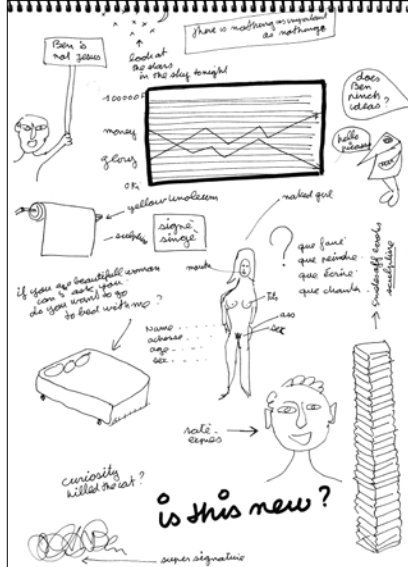 Ben is
not Jesus
look at
the stars
in the sky tonight
there is nothing as important
as nothing
100000F
money
glory
0F
does
Ben
pinch
ideas?
hello
picasso
yellow linoleum
sculpture
signé
singé
naked girl
mouth
tits
ass
sex
?
que faire
que peindre
que écrire
que chanter
sculpture
if you are beautifull woman
can I ask you
do you want to go
to bed with me?
Name
adresse
age
sex
raté
curiosity
killed the cat?
is this new?
super signature